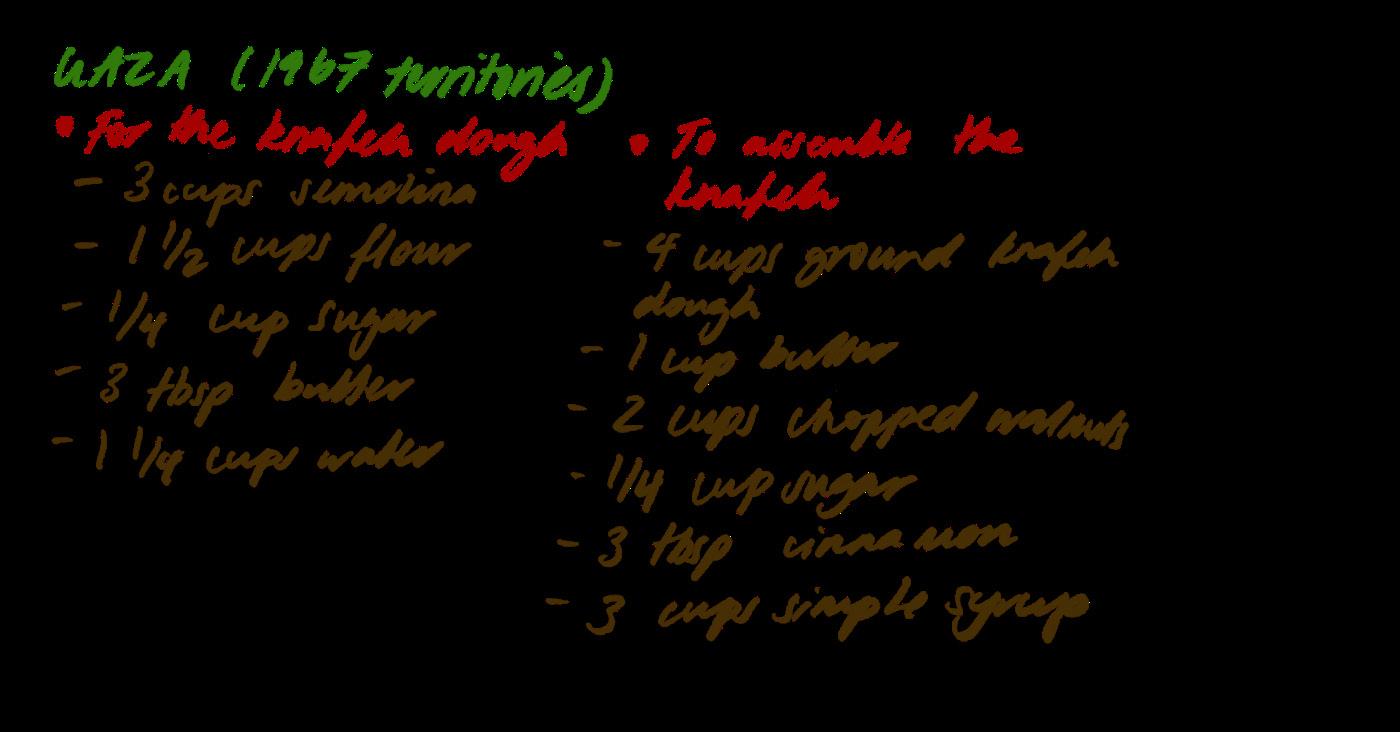 GAZA (1967 territories)
• For the knafeh dough
- 3 cups semolina
- 1 1/2 cups flour
- 1/4 cup sugar
- 3 tbsp butter
- 1 1/4 cups water
• To assemble the
knafeh
- 4 cups ground knafeh
dough
- 1 cup butter
- 2 cups chopped walnuts
- 1/4 cup sugar
- 3 tbsp cinnamon
- 3 cups simple syrup